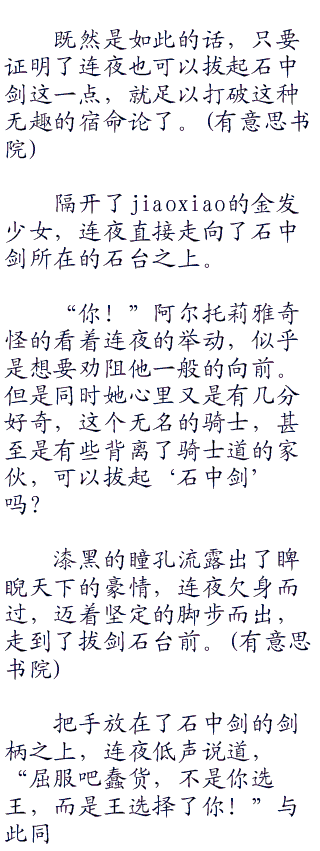 既然是如此的话，只要
证明了连夜也可以拔起石中
剑这一点，就足以打破这种
无趣的宿命论了。(有意思书
院)
隔开了jiaoxiao的金发
少女，连夜直接走向了石中
剑所在的石台之上。
“你！”阿尔托莉雅奇
怪的看着连夜的举动，似乎
是想要劝阻他一般的向前。
但是同时她心里又是有几分
好奇，这个无名的骑士，甚
至是有些背离了骑士道的家
伙，可以拔起‘石中剑’
吗？
漆黑的瞳孔流露出了睥
睨天下的豪情，连夜欠身而
过，迈着坚定的脚步而出，
走到了拔剑石台前。(有意思
书院)
把手放在了石中剑的剑
柄之上，连夜低声说道，
“屈服吧蠢货，不是你选
王，而是王选择了你！”与
此同